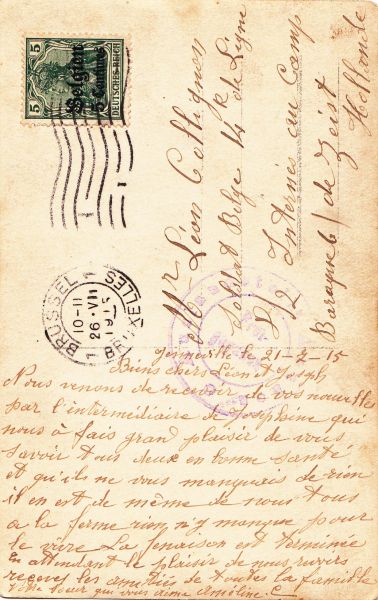 5 5
Belgien
5 Centimes
DEUTSCHES REICH
BRUSSEL
1 10-11 1
26.VII
1915
BRUXELLES
Mr Léon Collignon
Soldat Belge 14e de Ligne
Interné au Camp
de Zeist
Baraque 6
Hollande
le 21-7-15
Biens chers Léon et Joseph
Nous venons de recevoir de vos nouvelles
par l'intermédiaire de Joséphine qui
nous à fais grand plaisir de vous
savoir tous deux en bonne santé
et qu'ils ne vous manques de rien
il en est de même de nous tous
a la ferme rien n'y manque pour
le vivre La fenaison est terminée
en attendant le plaisir de nous revoirs
receves les amitiés de toutes la famille
Votre soeur qui vous aime